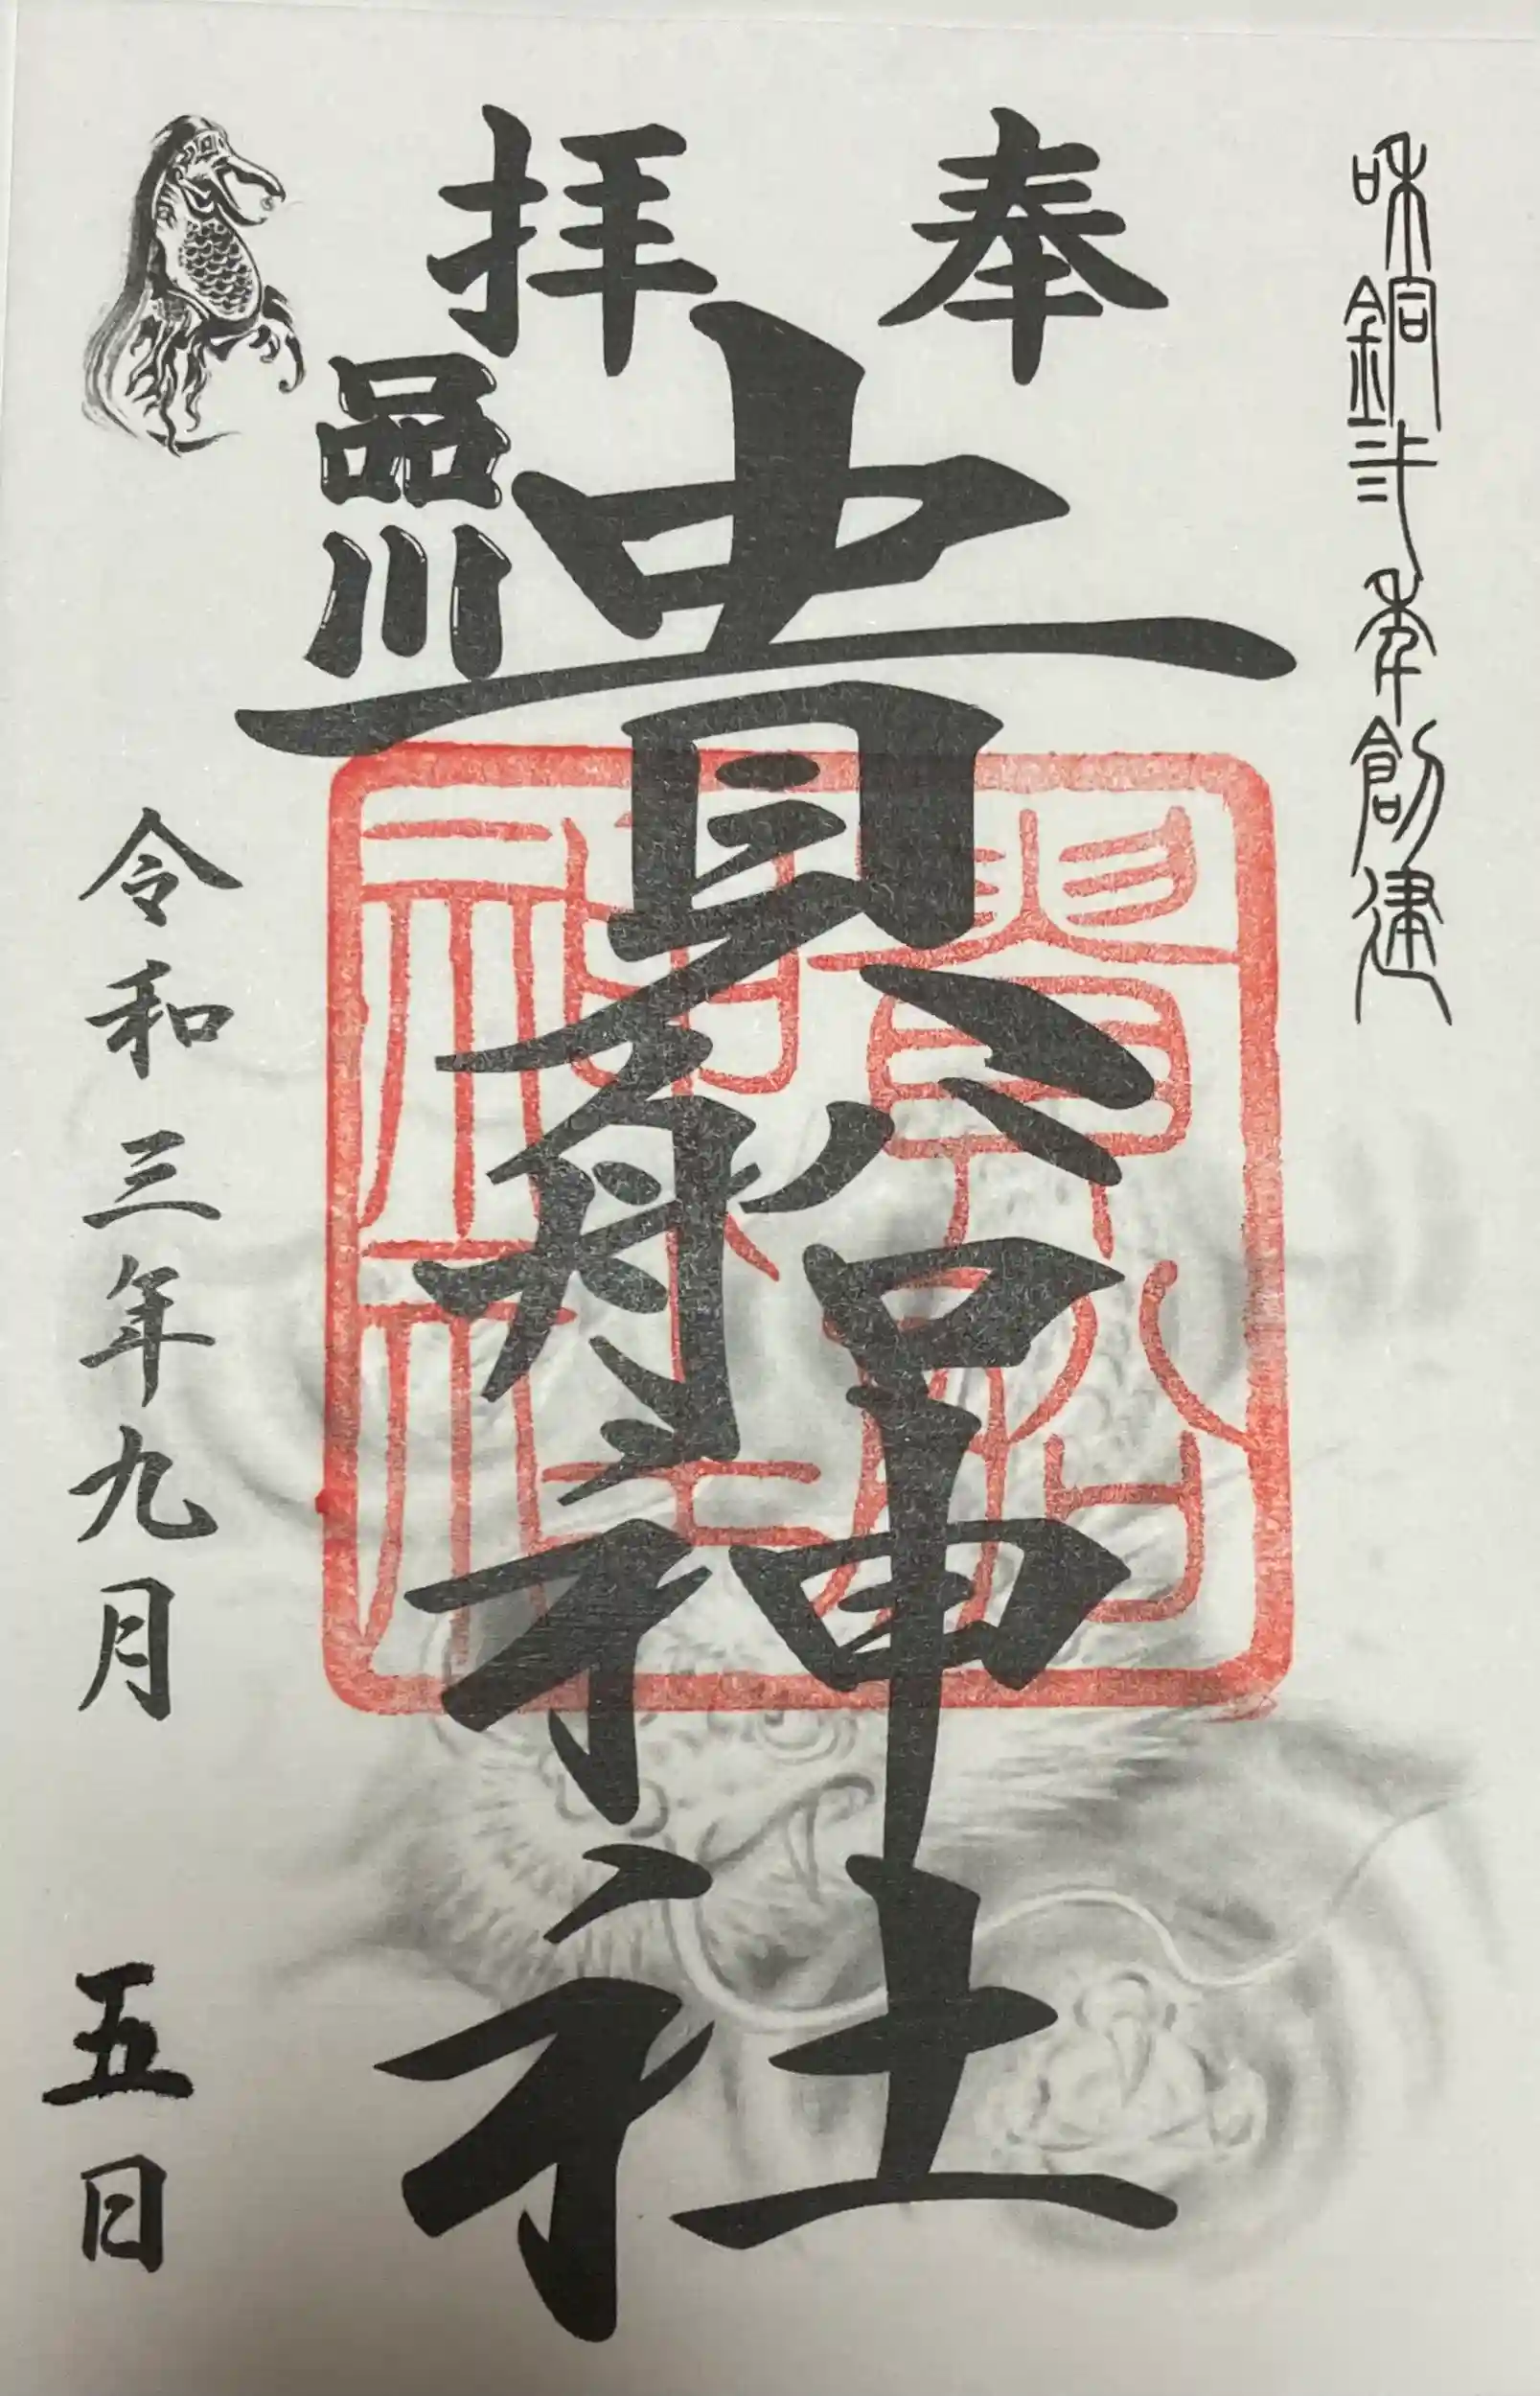 和銅弐年創建
奉拝
貴船神社
品川
貴船神社
令和三年九月五日